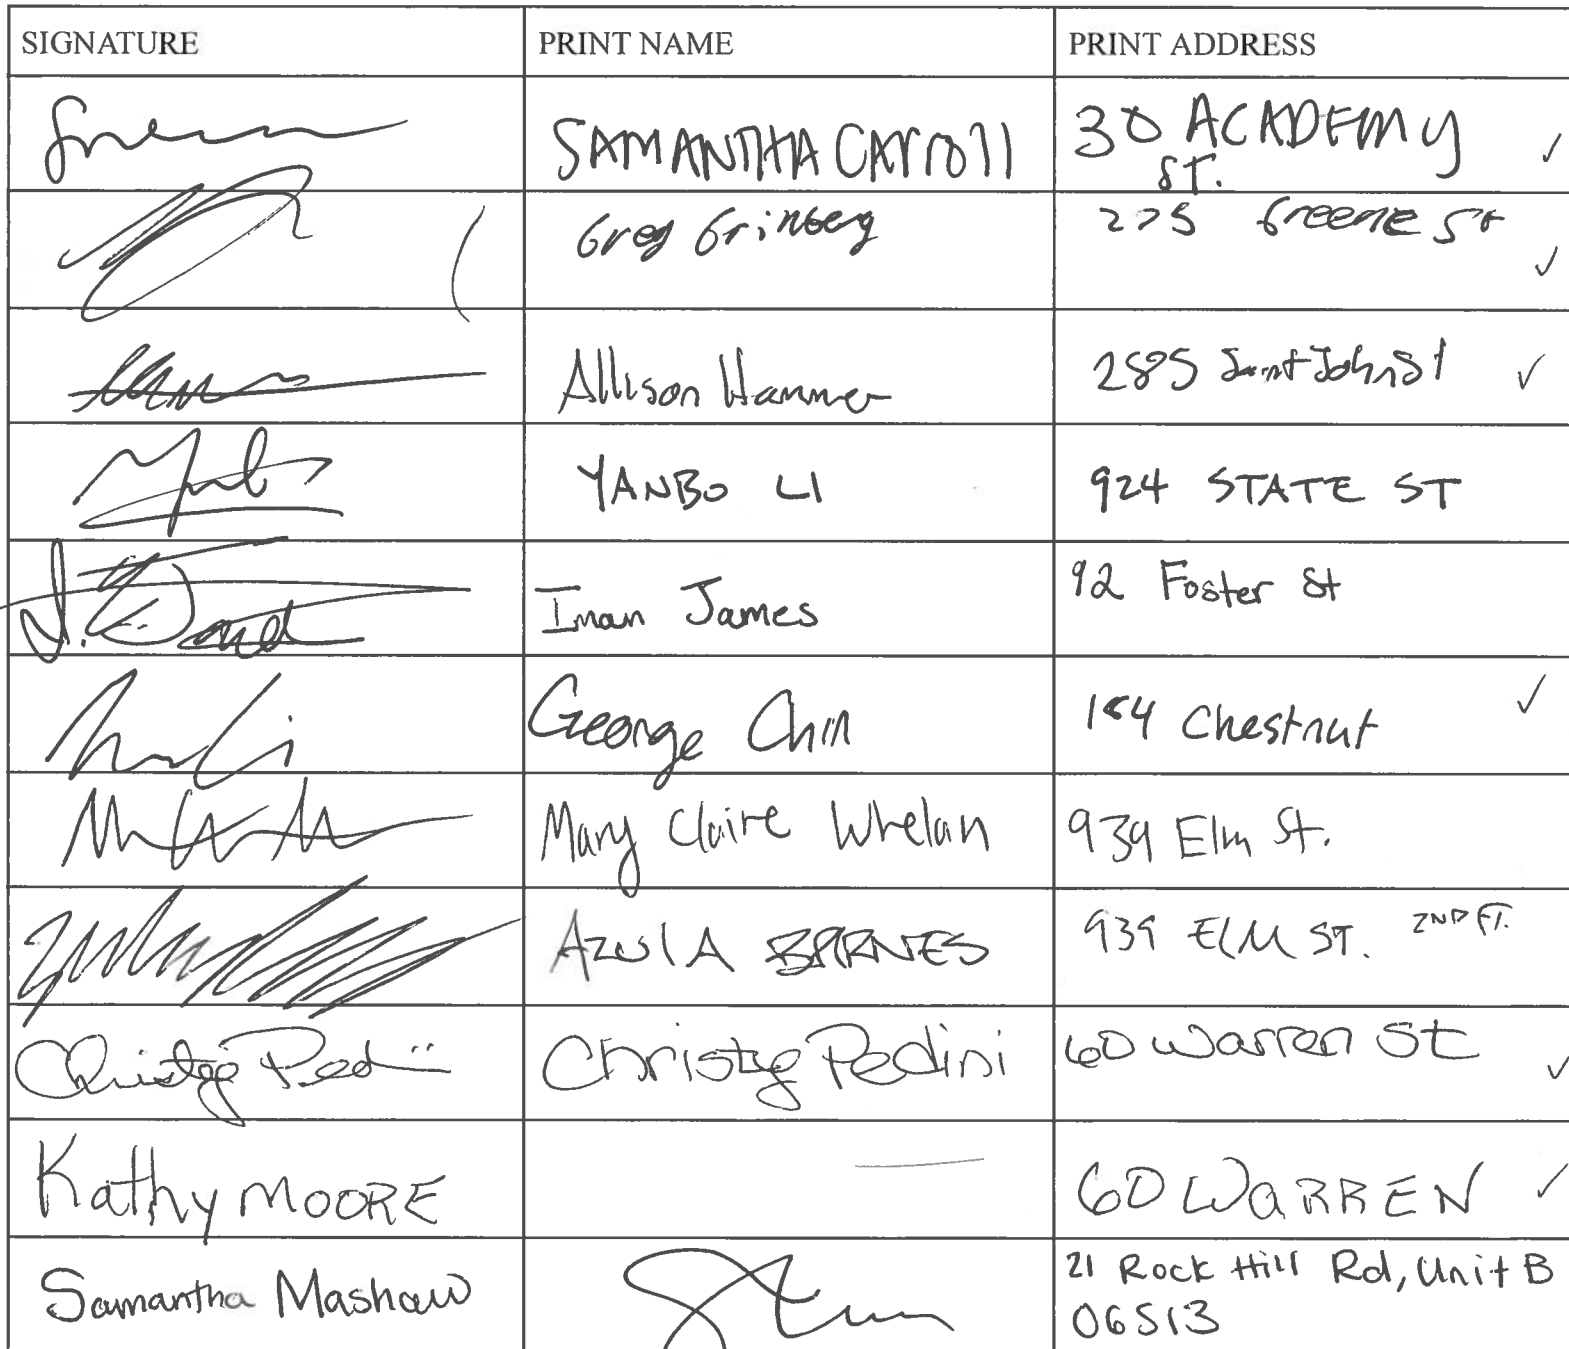 SIGNATURE PRINT NAME PRINT ADDRESS
SAMANTHA CARroll 30 ACADEMY
ST.
Greg Grinberg 275 Greene St
Allison Hammer 285 Saint John St
YANBO LI 924 STATE ST
Iman James 92 Foster St
George Chin 184 Chestnut
Mary Claire Whelan 939 Elm St.
AZUlA BARNES 939 ElM ST. 2ND Fl.
Christy Pedini Christy Pedini 60 Warren St
Kathy MOORE 60 WaRREN
Samantha Mashaw 21 Rock Hill Rd, Unit B
06513